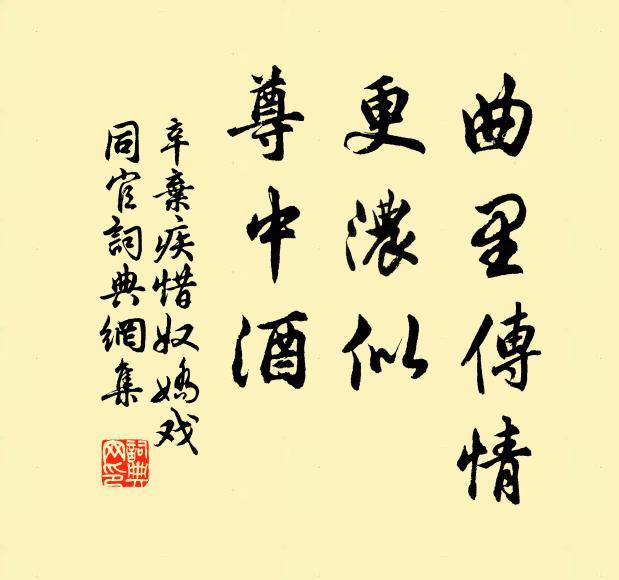 曲里傳情
更濃似
尊中酒
辛棄疾惜奴嬌戏
同官詞典網集
詞典
网印